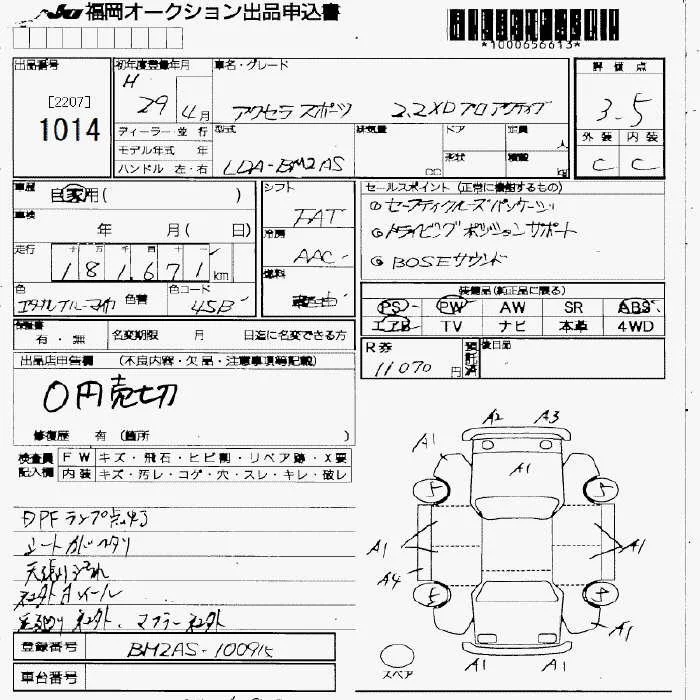 JU 福岡オークション出品申込書
*1000656613*
出品番号
[2207]
1014
初年度登録年月
H 29 4月
ディーラー・並行
モデル年式 年
ハンドル 左・右
車名・グレード
アクセラ スポーツ 2.2XDプロアクティブ
型式
LDA-BM2AS
排気量
cc
ドア
形状
定員
人
積載
kg
評価点
3.5
外装 内装
C C
車歴
自家用( )
車検
年 月( 日)
走行
十 万 千 百 十 一
181,671 km
色
エタナルブルーマイカ
色替
色コード
45B
シフト
FAT
冷房
AAC
燃料
軽油
セールスポイント (正常に機能するもの)
①セーフティクルーズパッケージ
②ドライビングポジションサポート
③BOSEサウンド
装備品(純正品に限る)
PS PW AW SR ABS
エアB TV ナビ 本革 4WD
保証書
有・無
名変期限 月 日迄に名変できる方
R券
11070円
預託済
後日品
出品店申告欄 (不良内容・欠品・注意事項等記載)
0円売切
修復歴 有 (箇所 )
検査員記入欄
FW キズ・飛石・ヒビ割・リペア跡・X要
内装 キズ・汚レ・コゲ・穴・スレ・キレ・破レ
DPFランプ点灯
シートカバーベタリ
天張り汚れ
社外ホイール
社外、マフラー社外
登録番号
BM2AS-100915
車台番号
A2 A3
A1
A1
5 5
A1
A1
A4
5 5
A1
A1 A1
スペア